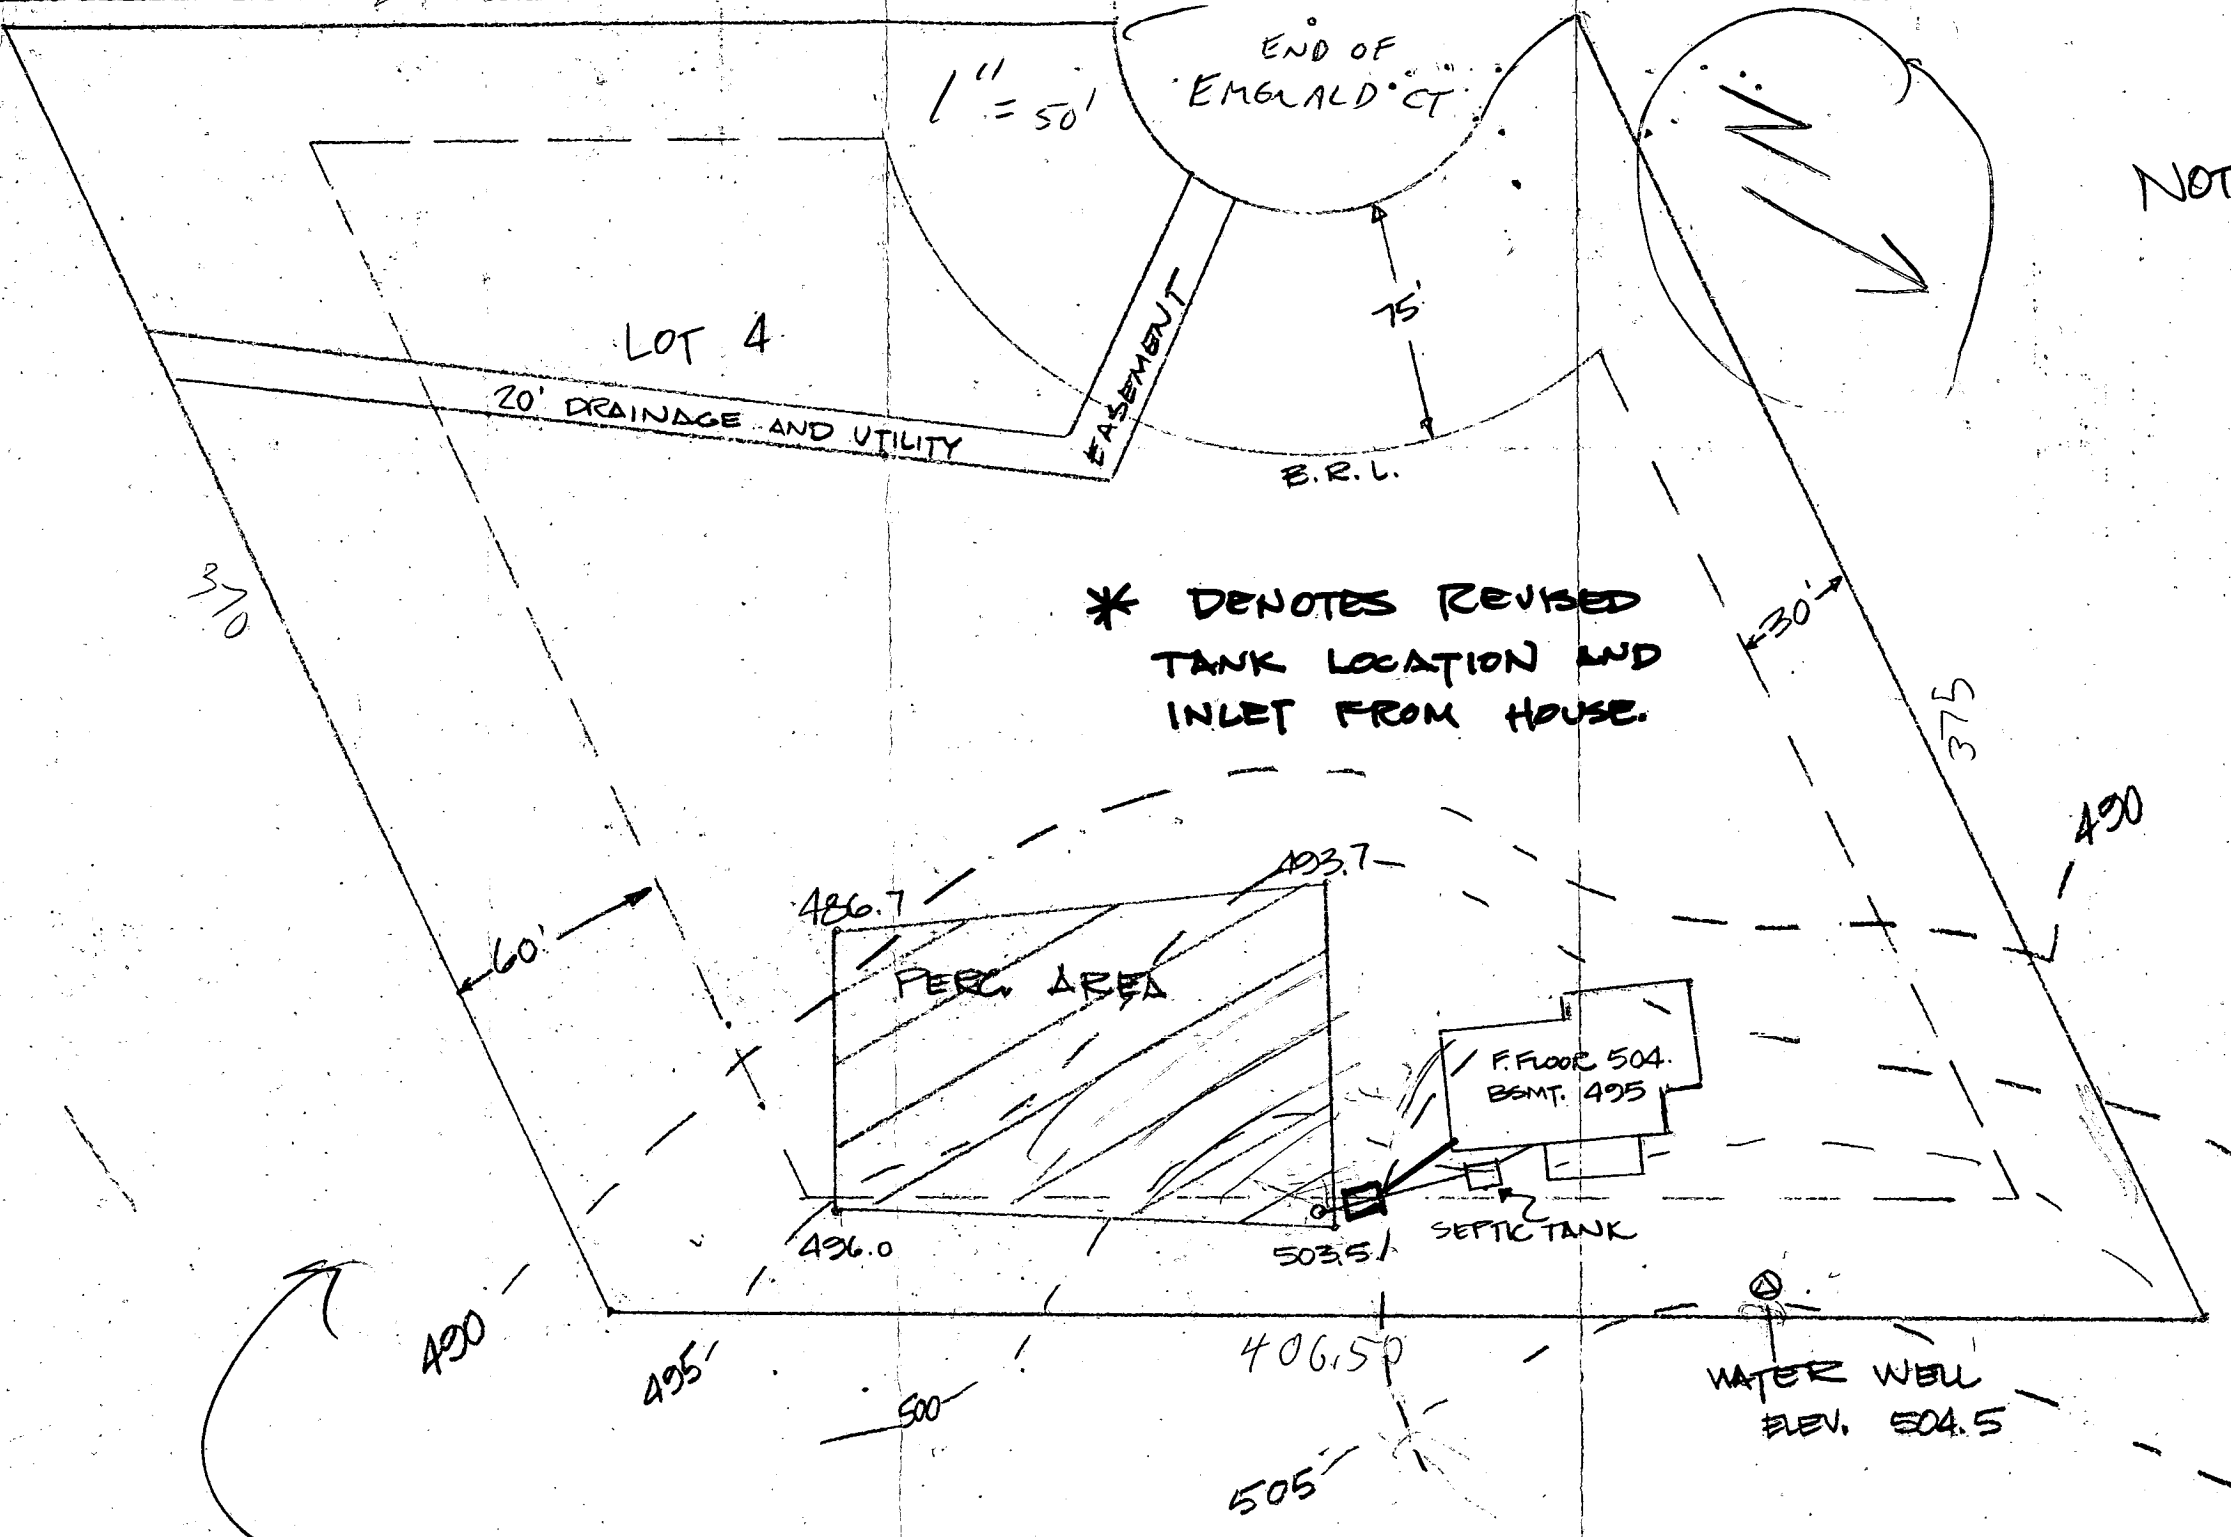 END OF
EMERALD CT
1" = 50'
N
NOT
75'
LOT 4
20' DRAINAGE AND UTILITY
EASEMENT
B.R.L.
370
* DENOTES REVISED
TANK LOCATION AND
INLET FROM HOUSE.
30'
375
490
493.7
486.7
60'
PERC. AREA
F.FLOOR 504.
BSMT. 495
496.0
503.5
SEPTIC TANK
490
495
406.50
500
WATER WELL
ELEV. 504.5
505